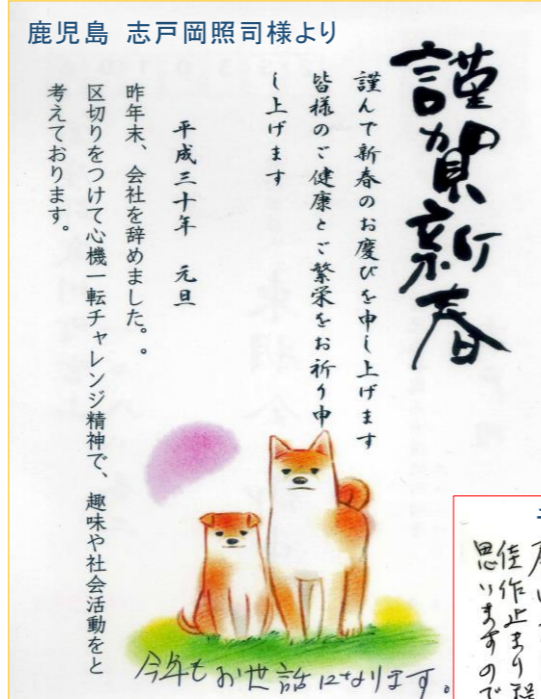 鹿児島 志戸岡照司様より
謹賀新春
謹んで新春のお慶びを申し上げます
皆様のご健康とご繁栄をお祈り申
し上げます
平成三十年 元旦
昨年末、会社を辞めました。。
区切りをつけて心機一転チャレンジ精神で、趣味や社会活動をと
考えております。
今年もお世話になります。
佳作止まり
思いますので